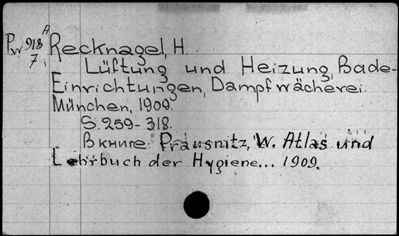 Pw 918 A
7.
Recknagel, H.
Lüftung und Heizung, Bade-
Einrichtungen, Dampfwächerei.
München, 1909
S. 259-318.
В книге: Prausnitz, W. Atlas und
Lehrbuch der Hygiene... 1909.